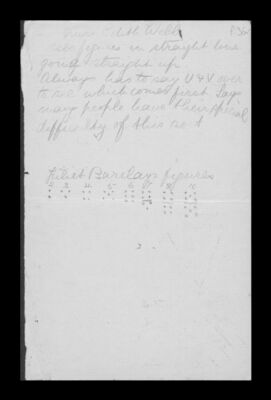 Miss Edith Webb
sees figures in straight line
going straight up
Always has to say U & V over
to see which comes first. Says
many people have their special
difficulty of this sort
Juliet Barclays figures
2 3 4 5 6 7 8 9